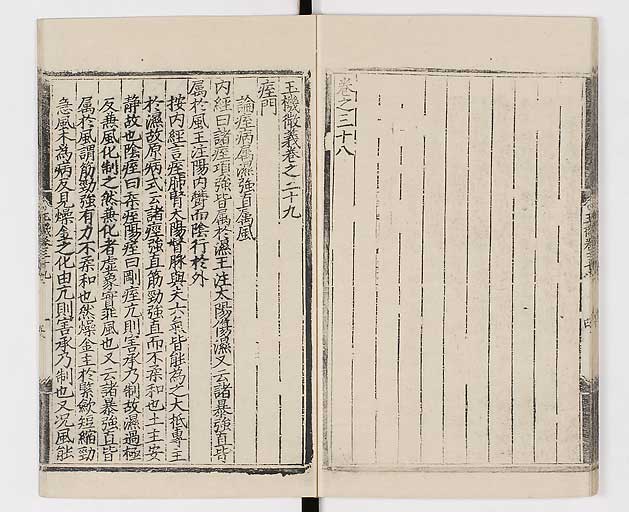 卷之三十八
玉機微義卷之三十九
痓門
論痓病屬濕強直屬風
內經曰諸痓項強皆屬於濕王注太陽傷濕又云諸暴強直皆
屬於風王注陽內鬱而陰行於外
按內經言痓肺腎太陽督脉與夫六氣皆能為之大抵專主
於濕故原病式云諸痙強直筋勁強直而不柔和也土主安
靜故也陰痓曰柔痓陽痓曰剛痓亢則害承乃制故濕過極
反兼風化制之然兼化者虛象實非風也又云諸暴強直皆
屬於風謂筋勁強有力不柔和也然燥金主於緊斂短縮勁
急風木為病反見燥金之化由亢則害承乃制也又况風能